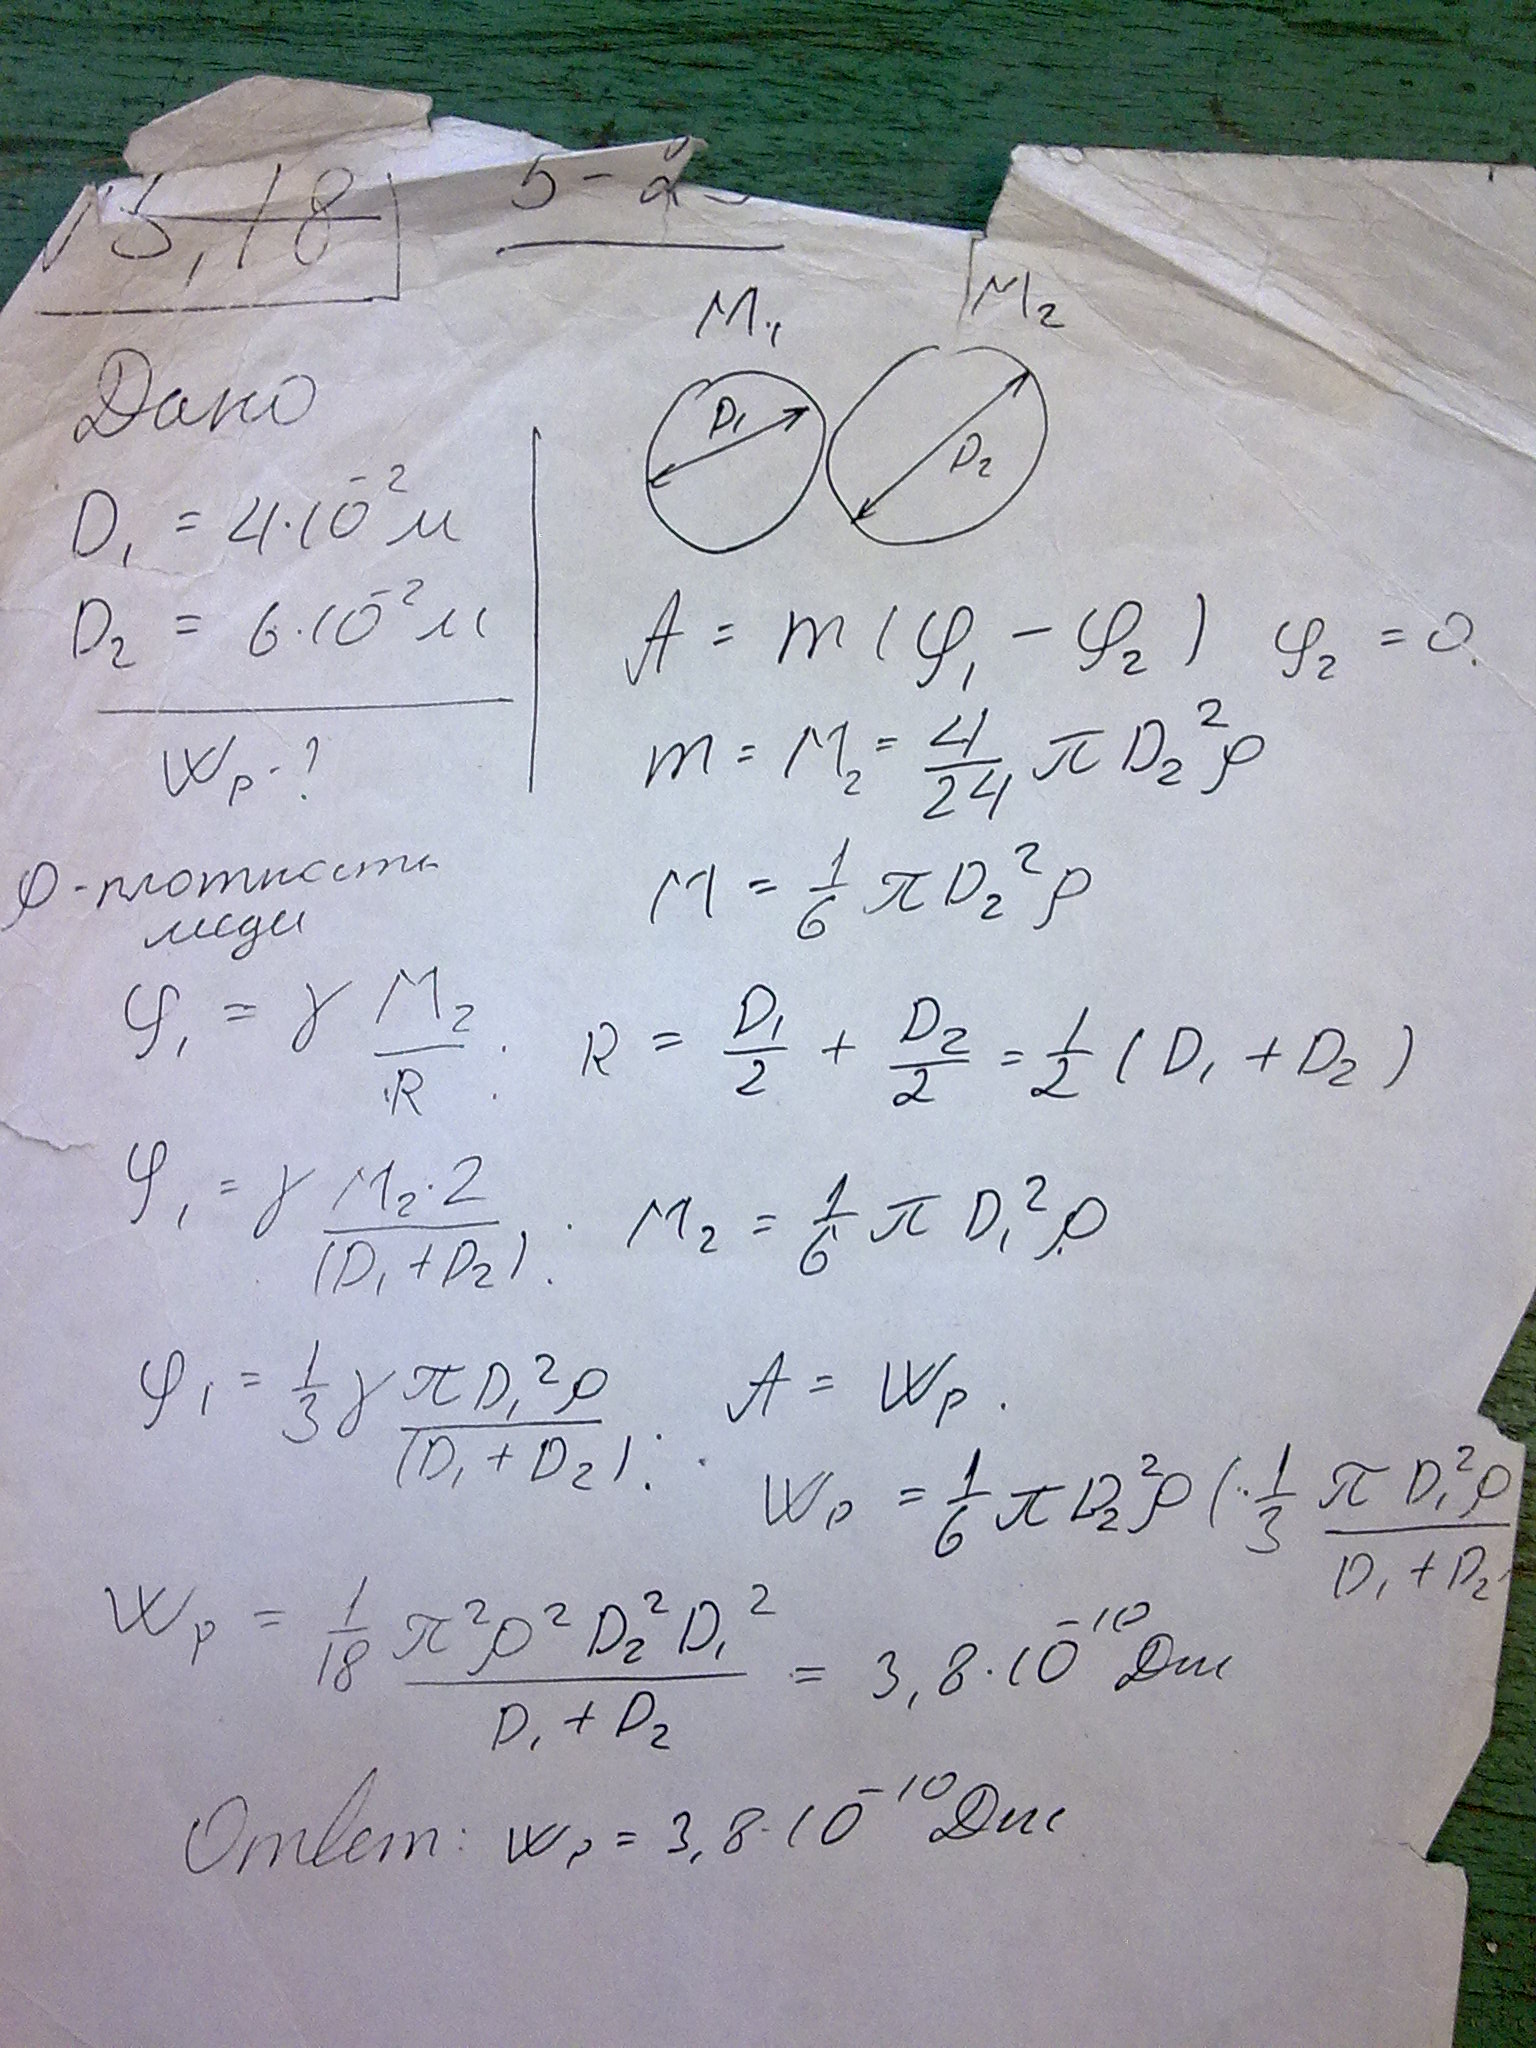 √5,18) 5-2
M₁ M₂
D₁ D₂
Дано
D₁ = 4·10⁻²м
D₂ = 6·10⁻²м
Wp-?
ρ-плотность
меди
A = m(φ₁ - φ₂) φ₂ = 0.
m = M₂ = 4/24 π D₂²ρ
M = 1/6 π D₂²ρ
φ₁ = γ M₂/R; R = D₁/2 + D₂/2 = 1/2 (D₁ + D₂)
φ₁ = γ M₂·2/(D₁+D₂); M₂ = 1/6 π D₁²ρ
φ₁ = 1/3 γ πD₁²ρ/(D₁+D₂); A = Wp.
Wp = 1/6 π D₂²ρ (·1/3 π D₁²ρ/D₁+D₂
Wp = 1/18 π²ρ²D₂²D₁²/D₁+D₂ = 3,8·10⁻¹⁰Дж
Ответ: Wp = 3,8·10⁻¹⁰Дж